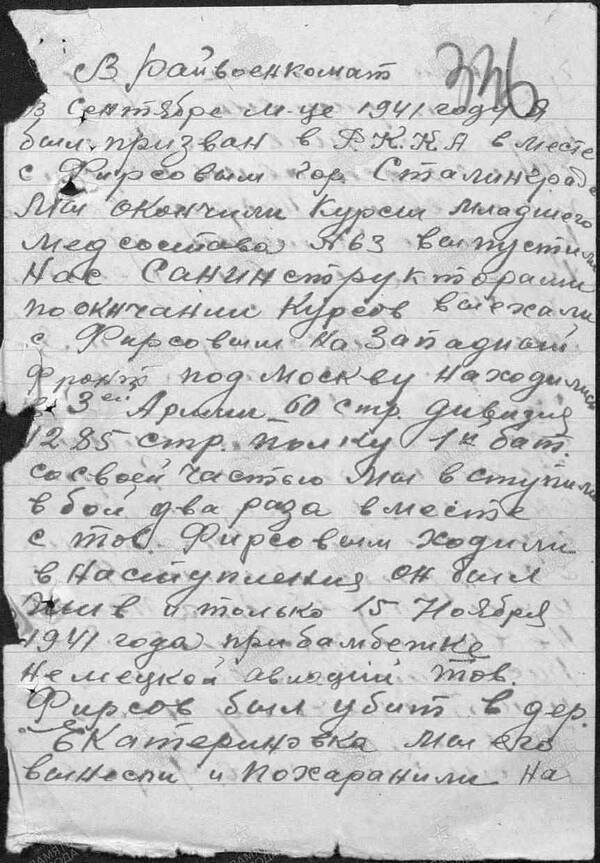 336
В Райвоенкомат
В Сентябре м-це 1941 году Я
был призван в Р.К.К.А вместе
с Фирсовым гор. Сталинграде
Мы окончили Курсы младшего
медсостава №63 выпустили
нас Санинструкторами
по окнчании Курсов выехали
с Фирсовым на Западный
фронт под москву находились
в 3ей Армии 60 стр. дивизия
1285 стр. полку 1й бат.
сосвоей частью мы вступили
в бой два раза вместе
с тов. Фирсовым ходили
в наступления он был
жив и только 15 Ноября
1941 года прибамбежке
немецкой авиоции тов.
Фирсов был убит в дер.
Екатериновка мы его
вынесли и похаранили на